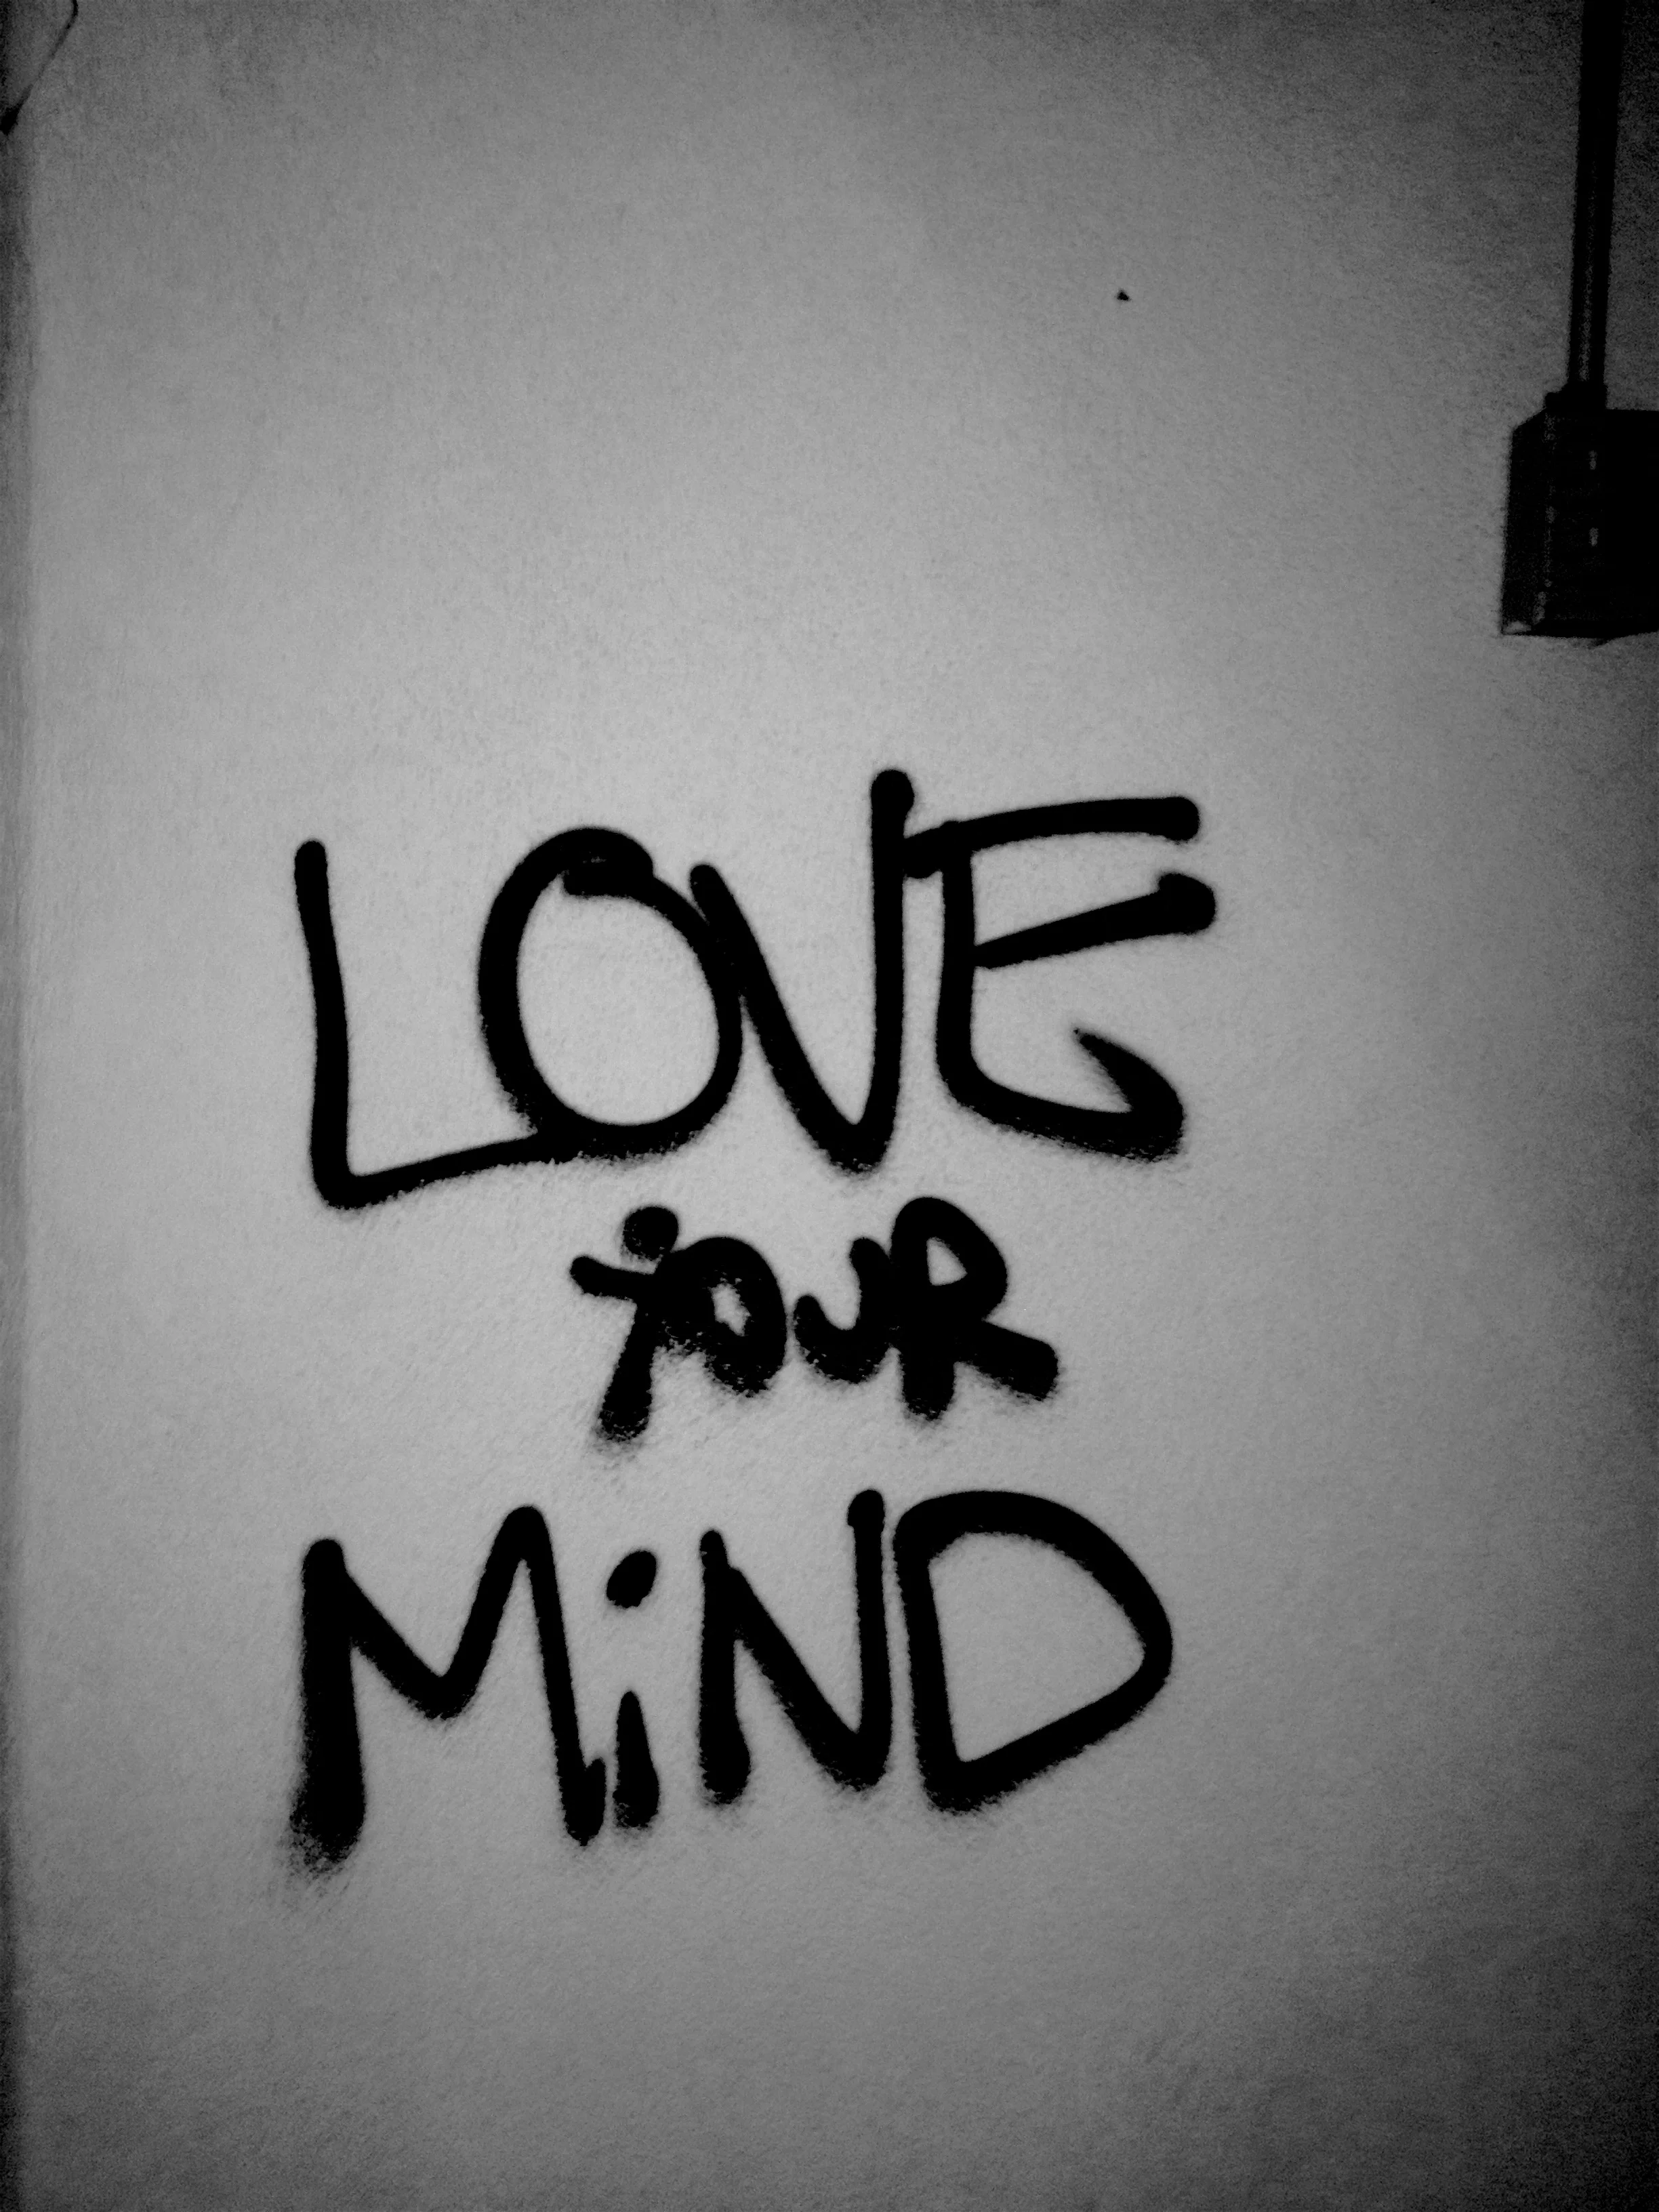 LOVE
YOUR
MiND